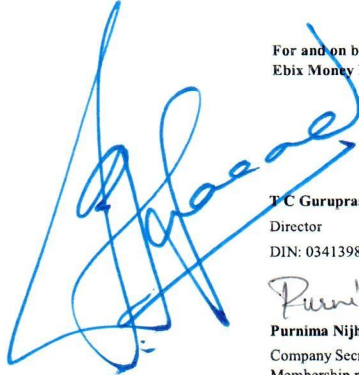 For and on b
Ebix Money
T C Gurupras
Director
DIN: 0341398
Purni
Purnima Nijh
Company Secr
Membership n